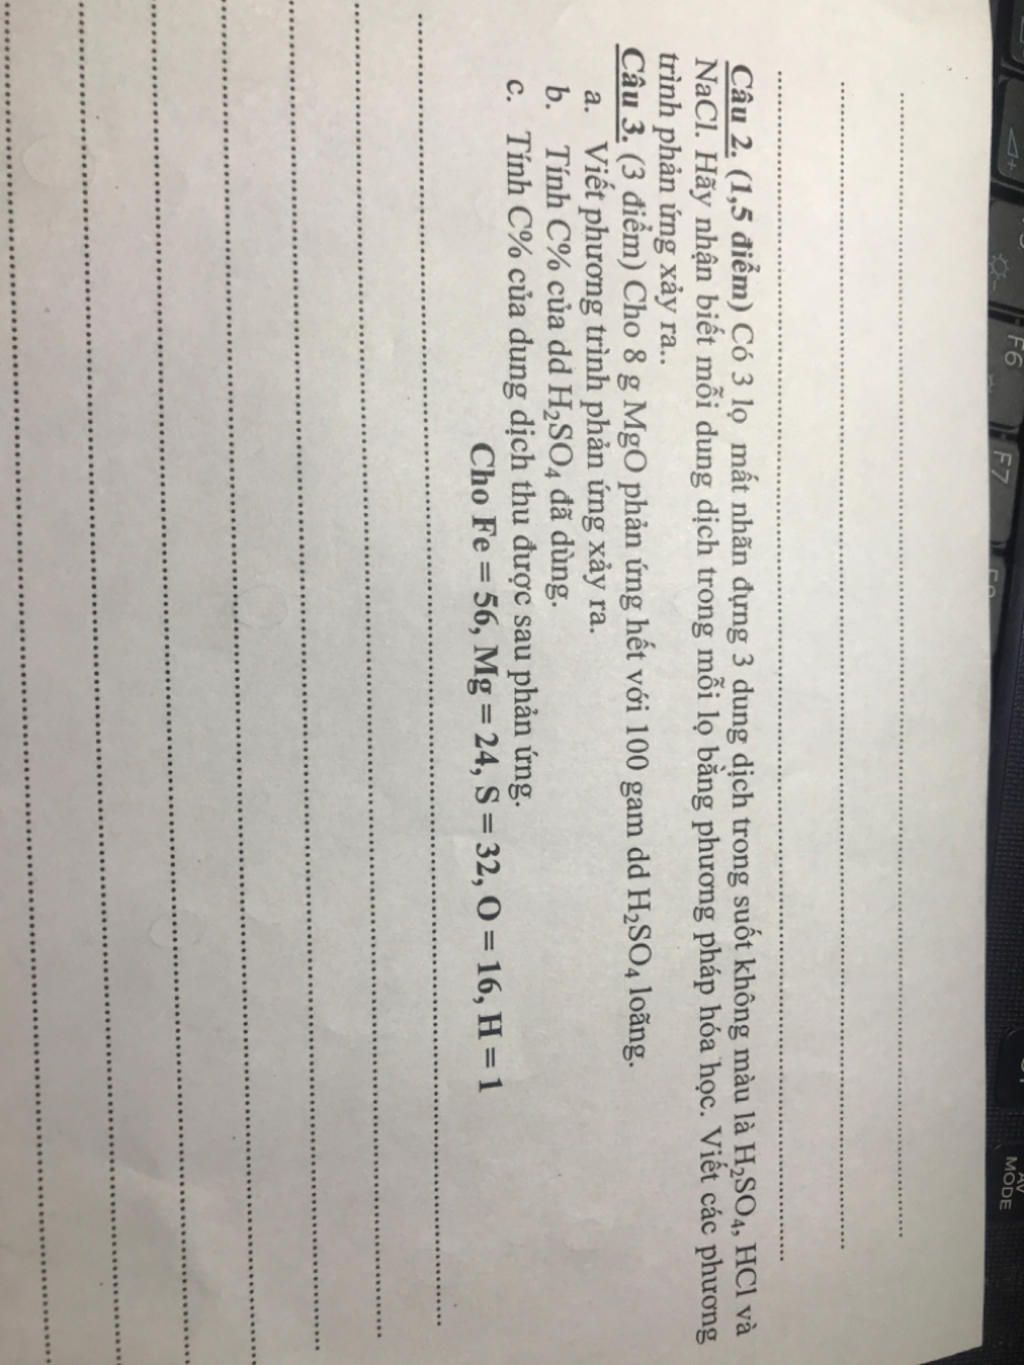 Câu 2. (1,5 điểm) Có 3 lọ mất nhãn đựng 3 dung dịch trong suốt không màu là H₂SO₄, HCl và
NaCl. Hãy nhận biết mỗi dung dịch trong mỗi lọ bằng phương pháp hóa học. Viết các phương
trình phản ứng xảy ra..
Câu 3. (3 điểm) Cho 8 g MgO phản ứng hết với 100 gam dd H₂SO₄ loãng.
a. Viết phương trình phản ứng xảy ra.
b. Tính C% của dd H₂SO₄ đã dùng.
c. Tính C% của dung dịch thu được sau phản ứng.
Cho Fe = 56, Mg = 24, S = 32, O = 16, H = 1
F6
F7
MODE